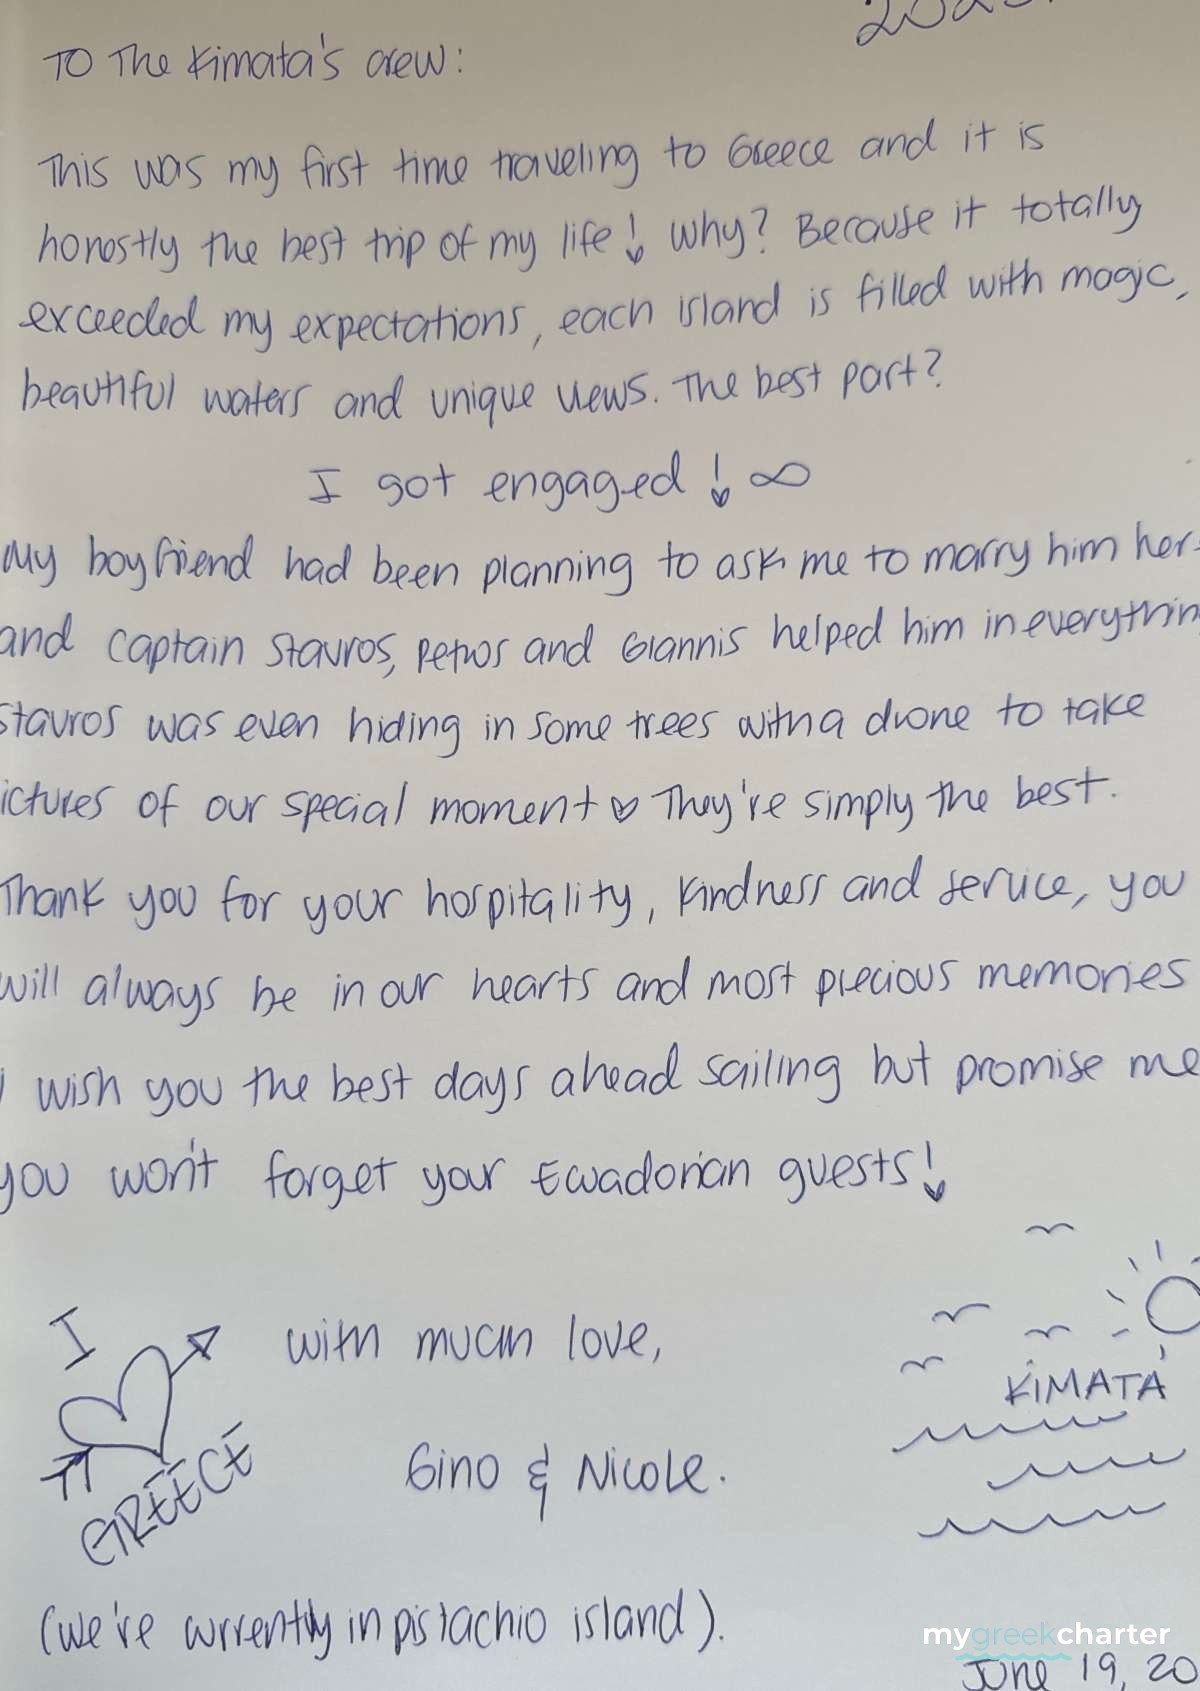 To The Kimata's crew:
This was my first time traveling to Greece and it is
honestly the best trip of my life! Why? Because it totally
exceeded my expectations, each island is filled with magic,
beautiful waters and unique views. The best part?
I got engaged! ∞
My boyfriend had been planning to ask me to marry him her
and captain Stavros, Petros and Giannis helped him in everythin
Stavros was even hiding in some trees with a drone to take
ictures of our special moment ♡ They're simply the best.
Thank you for your hospitality, kindness and service, you
will always be in our hearts and most precious memories
I wish you the best days ahead sailing but promise me
you won't forget your Ecuadorian guests!
I
GREECE
with much love,
Gino & Nicole.
KIMATA
(we're currently in pistachio island).
mygreekcharter
June 19, 20